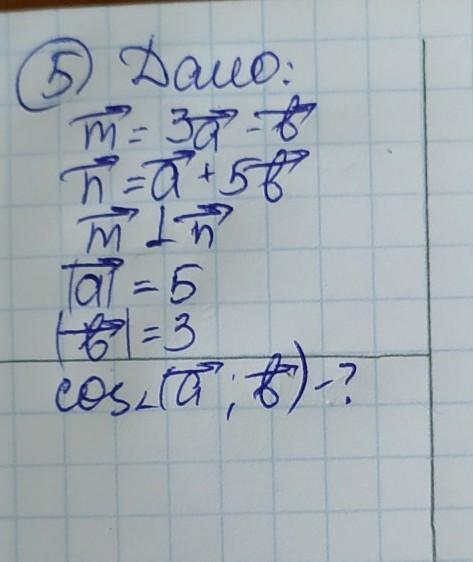 5 Дано:
m⃗ = 3a⃗ - b⃗
n⃗ = a⃗ + 5b⃗
m⃗ ⊥ n⃗
|a⃗| = 5
|b⃗| = 3
cos∠(a⃗; b⃗) - ?